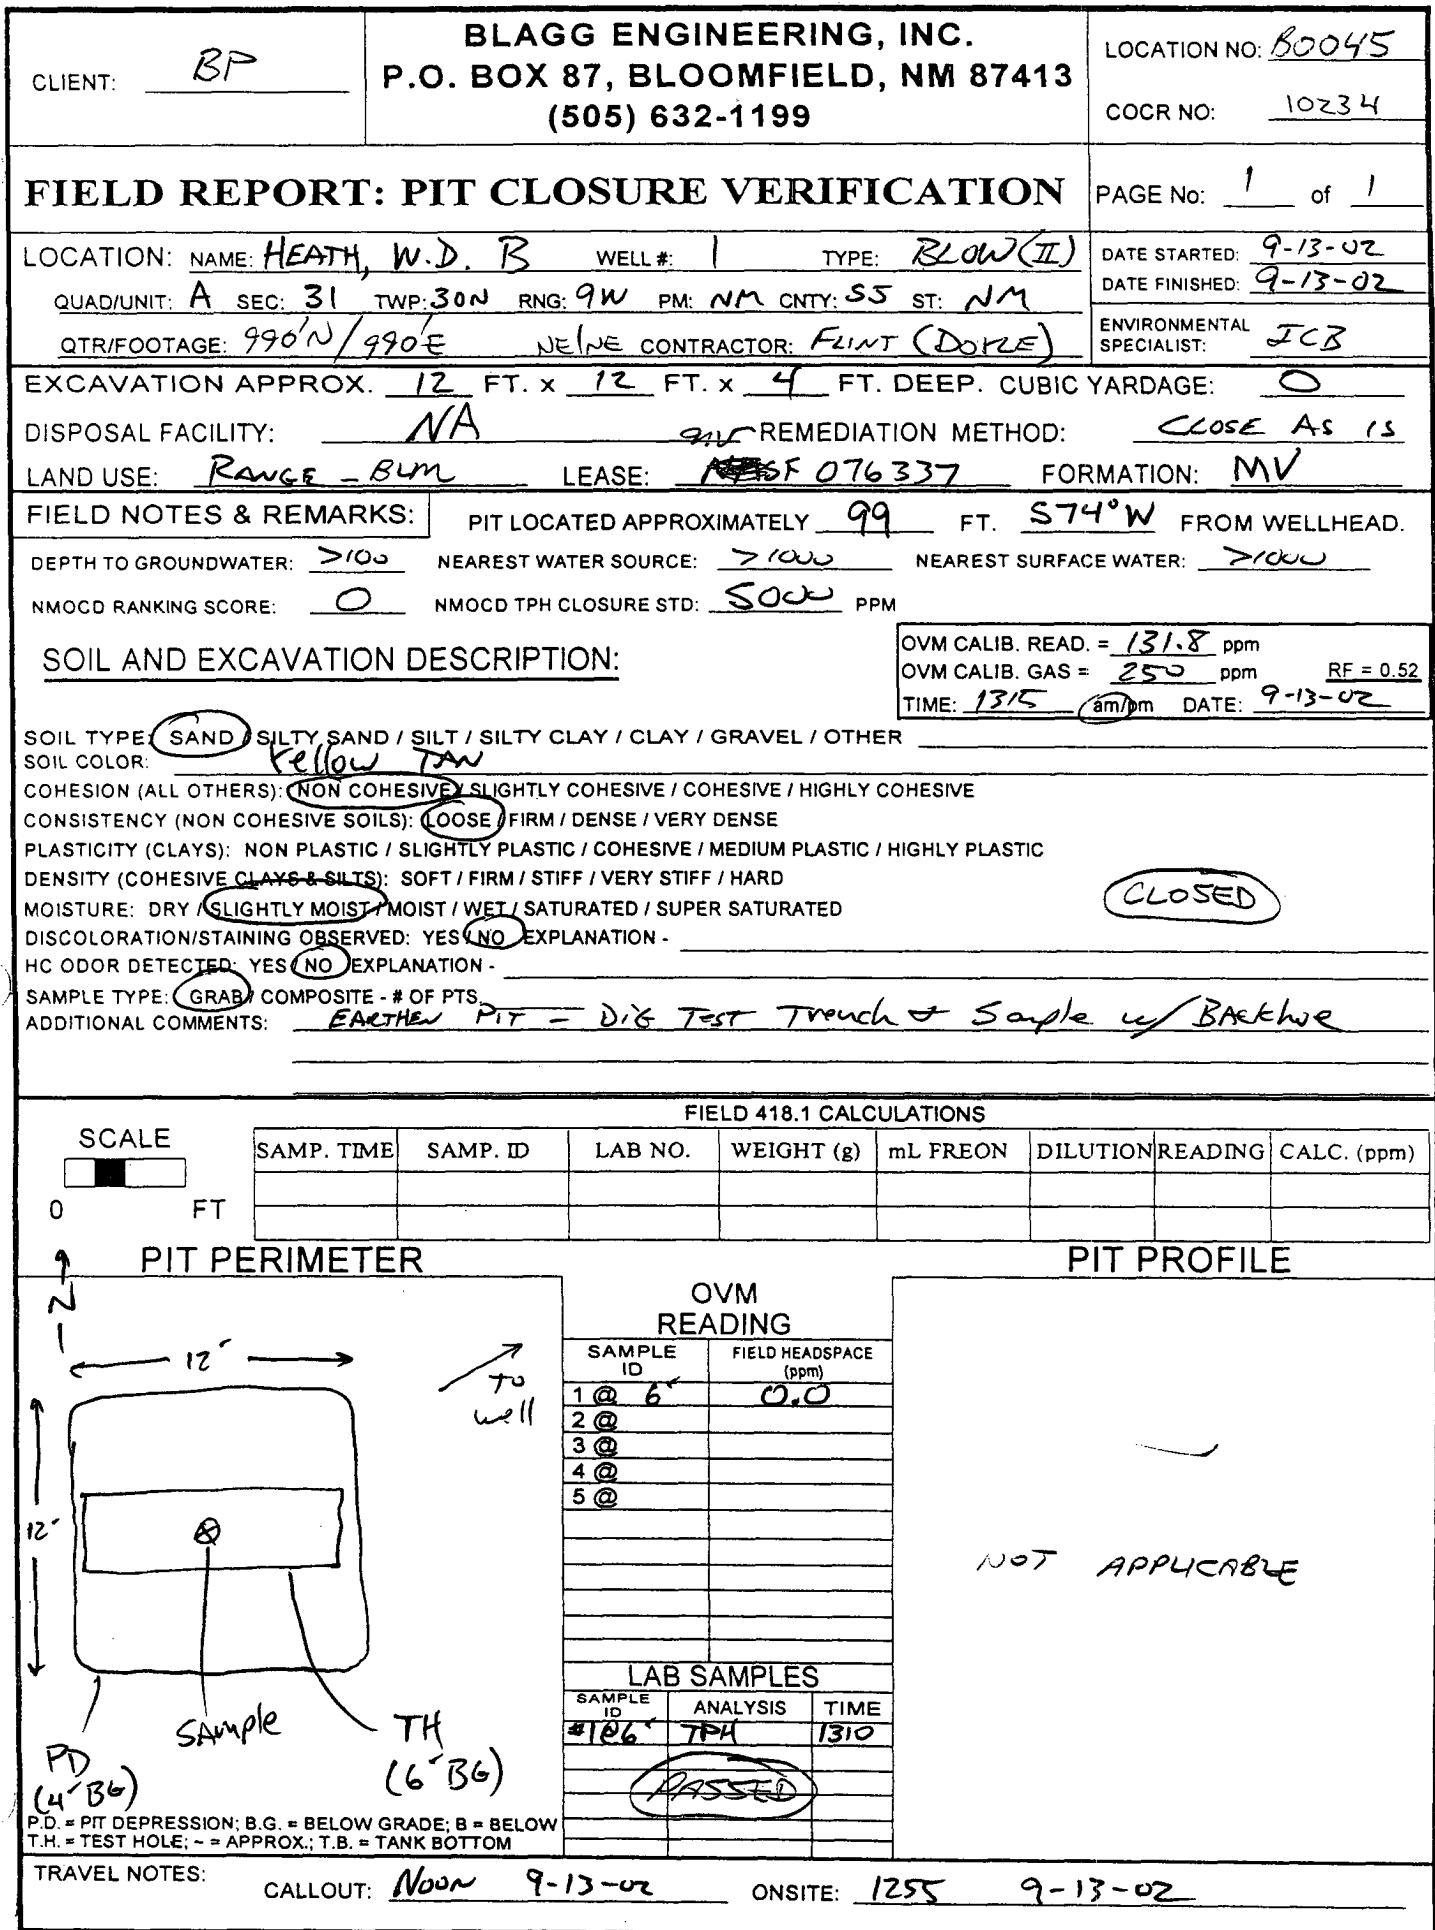 CLIENT: BP
BLAGG ENGINEERING, INC.
P.O. BOX 87, BLOOMFIELD, NM 87413
(505) 632-1199
LOCATION NO: B0045
COCR NO: 10234
FIELD REPORT: PIT CLOSURE VERIFICATION
PAGE No: 1 of 1
LOCATION: NAME: HEATH, W.D. B WELL #: 1 TYPE: BLOW (II)
QUAD/UNIT: A SEC: 31 TWP: 30N RNG: 9W PM: NM CNTY: SJ ST: NM
QTR/FOOTAGE: 990'N/990'E NE/NE CONTRACTOR: FLINT (DOYLE)
DATE STARTED: 9-13-02
DATE FINISHED: 9-13-02
ENVIRONMENTAL SPECIALIST: JCB
EXCAVATION APPROX. 12 FT. x 12 FT. x 4 FT. DEEP. CUBIC YARDAGE: 0
DISPOSAL FACILITY: NA REMEDIATION METHOD: CLOSE AS IS
LAND USE: RANGE - BLM LEASE: SF 076337 FORMATION: MV
FIELD NOTES & REMARKS: PIT LOCATED APPROXIMATELY 99 FT. S74°W FROM WELLHEAD.
DEPTH TO GROUNDWATER: >100 NEAREST WATER SOURCE: >1000 NEAREST SURFACE WATER: >1000
NMOCD RANKING SCORE: 0 NMOCD TPH CLOSURE STD: 5000 PPM
SOIL AND EXCAVATION DESCRIPTION:
OVM CALIB. READ. = 131.8 ppm
OVM CALIB. GAS = 250 ppm RF = 0.52
TIME: 1315 am/pm DATE: 9-13-02
SOIL TYPE: SAND / SILTY SAND / SILT / SILTY CLAY / CLAY / GRAVEL / OTHER
SOIL COLOR: Yellow TAN
COHESION (ALL OTHERS): NON COHESIVE / SLIGHTLY COHESIVE / COHESIVE / HIGHLY COHESIVE
CONSISTENCY (NON COHESIVE SOILS): LOOSE / FIRM / DENSE / VERY DENSE
PLASTICITY (CLAYS): NON PLASTIC / SLIGHTLY PLASTIC / COHESIVE / MEDIUM PLASTIC / HIGHLY PLASTIC
DENSITY (COHESIVE CLAYS & SILTS): SOFT / FIRM / STIFF / VERY STIFF / HARD
MOISTURE: DRY / SLIGHTLY MOIST / MOIST / WET / SATURATED / SUPER SATURATED
CLOSED
DISCOLORATION/STAINING OBSERVED: YES / NO EXPLANATION -
HC ODOR DETECTED: YES / NO EXPLANATION -
SAMPLE TYPE: GRAB / COMPOSITE - # OF PTS.
ADDITIONAL COMMENTS: EARTHEN PIT - DIG TEST Trench & Sample w/ BACKhoe
FIELD 418.1 CALCULATIONS
SCALE
0 FT
SAMP. TIME SAMP. ID LAB NO. WEIGHT (g) mL FREON DILUTION READING CALC. (ppm)
PIT PERIMETER
PIT PROFILE
N
12'
12'
TO well
SAMPLE
TH (6' BG)
PD (4' BG)
P.D. = PIT DEPRESSION; B.G. = BELOW GRADE; B = BELOW
T.H. = TEST HOLE; ~ = APPROX.; T.B. = TANK BOTTOM
OVM
READING
SAMPLE ID FIELD HEADSPACE (ppm)
1 @ 6' 0.0
2 @
3 @
4 @
5 @
LAB SAMPLES
SAMPLE ID ANALYSIS TIME
#1@6' TPH 1310
PASSED
NOT APPLICABLE
TRAVEL NOTES:
CALLOUT: NOON 9-13-02 ONSITE: 1255 9-13-02